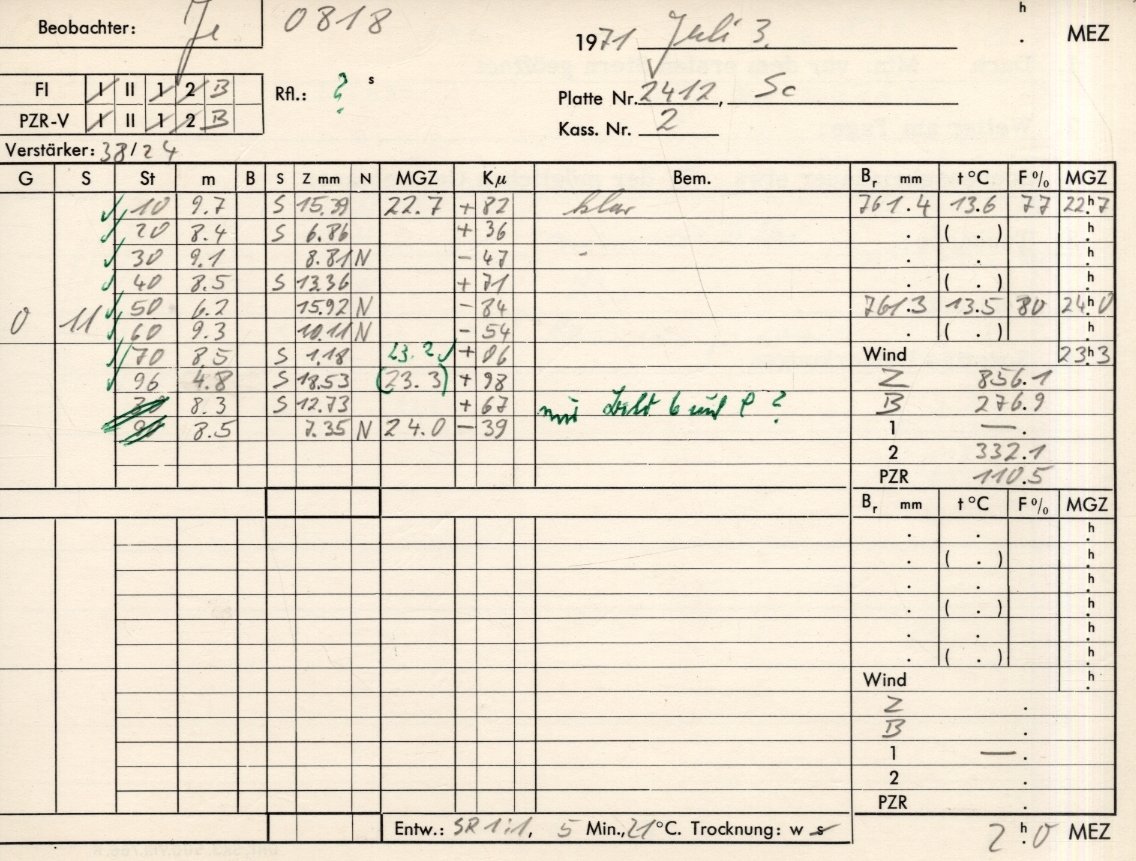 Beobachter: Je 0818 1971 Juli 3. h . MEZ
FI I II 1 2 B Rfl.: ? s Platte Nr. 2412, Sc
PZR-V I II 1 2 B Kass. Nr. 2
Verstärker: 38/24
G S St m B S Z mm N MGZ Kμ Bem. Br mm t°C F% MGZ
✓ 10 9.7 S 15.39 22.7 + 82 klar 761.4 13.6 77 22h.7
✓ 20 8.4 S 6.86 + 36 . ( . ) h.
✓ 30 9.1 8.81 N - 47 . . h.
✓ 40 8.5 S 13.36 + 71 . ( . ) h.
0 11 ✓ 50 6.2 15.92 N - 84 761.3 13.5 80 24h.0
✓ 60 9.3 10.11 N - 54 . ( . ) h.
✓ 70 8.5 S 1.18 23.2 ✓ + 06 Wind 23h.3
✓ 96 4.8 S 18.53 (23.3) + 98 Z 856.1
8.3 S 12.73 + 67 B 276.9
8.5 7.35 N 24.0 - 39 1 — .
2 332.1
PZR 110.5
Br mm t°C F% MGZ
. . h.
. ( . ) h.
. . h.
. ( . ) h.
. . h.
. ( . ) h.
Wind h.
Z .
B .
1 — .
2 .
PZR .
Entw.: SR 1:1, 5 Min., 21°C. Trocknung: w s 2h.0 MEZ